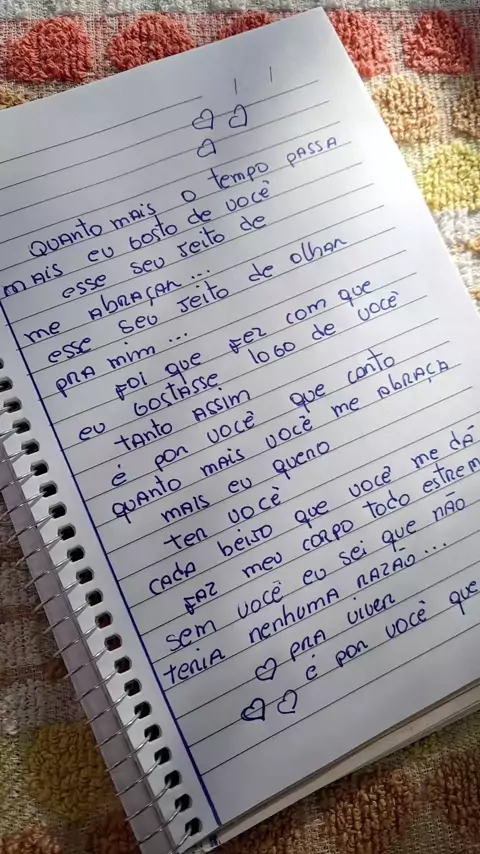 QUANTO MAIS O TEMPO PASSA
MAIS EU GOSTO DE VOCÊ
ESSE SEU JEITO DE
ME ABRAÇAR...
ESSE SEU JEITO DE OLHAR
PRA MIM...
FOI QUE FEZ COM QUE
EU GOSTASSE LOGO DE VOCÊ
TANTO ASSIM
É POR VOCÊ QUE CANTO
QUANTO MAIS VOCÊ ME ABRAÇA
MAIS EU QUERO
TER VOCÊ
CADA BEIJO QUE VOCÊ ME DÁ
FAZ MEU CORPO TODO ESTREM
SEM VOCÊ EU SEI QUE NÃO
TERIA NENHUMA RAZÃO...
PRA VIVER
É POR VOCÊ QUE